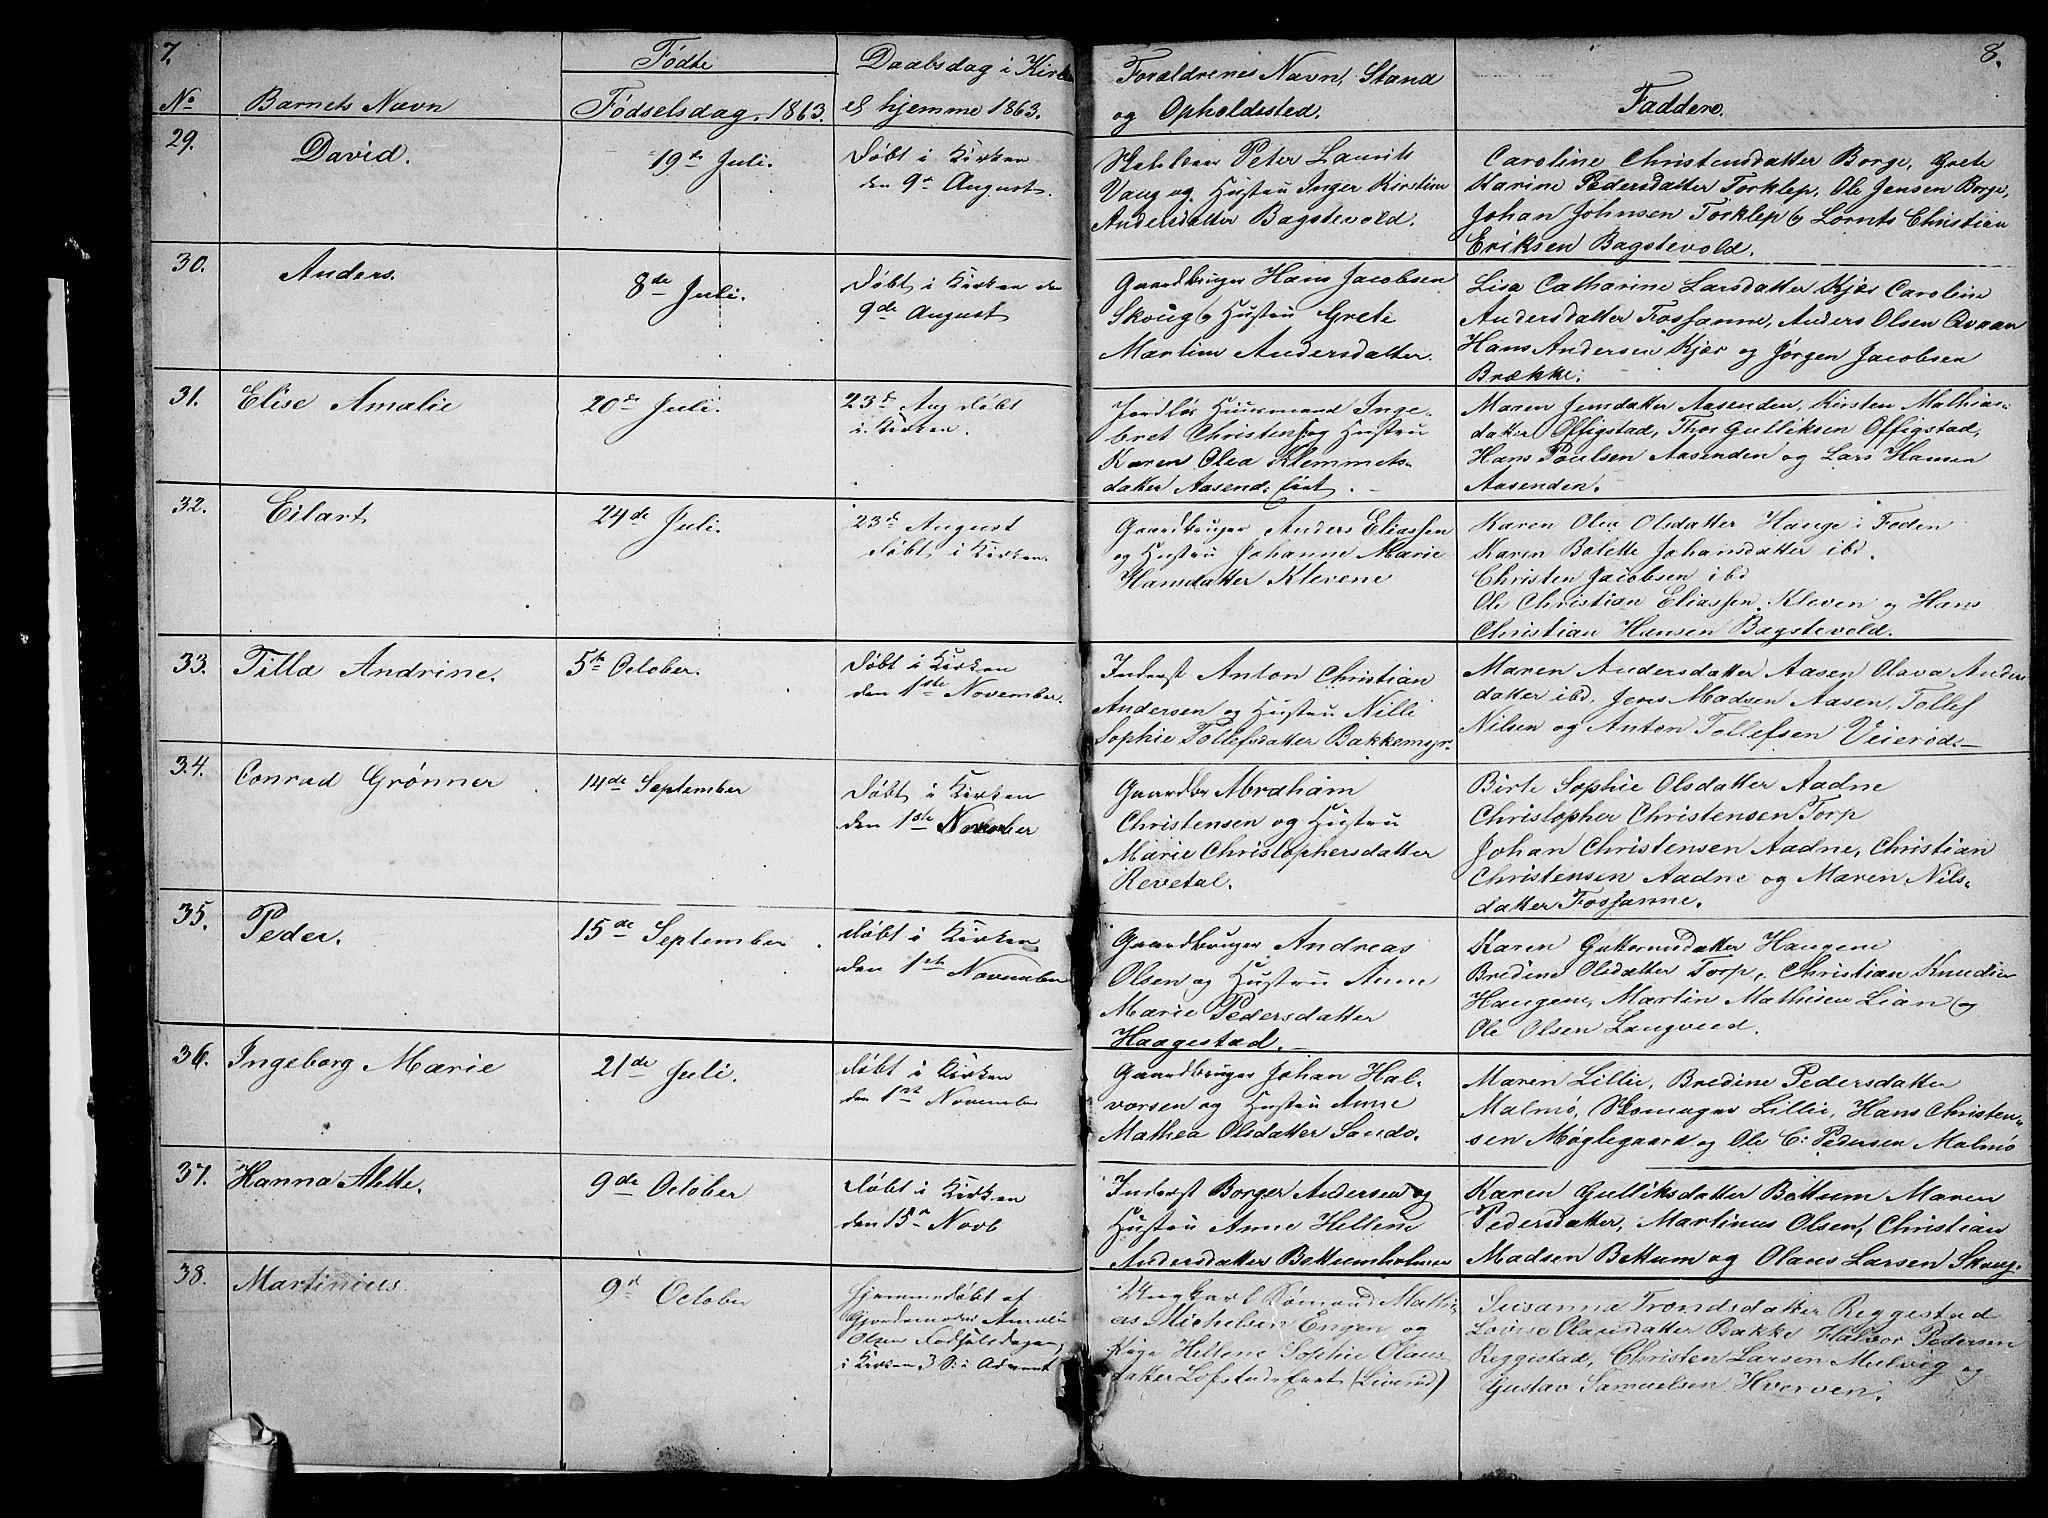 7.
8.
Fødte
Daabsdag i Kirke
Forældrenes Navn, Stand
No Barnets Navn
Fødselsdag, 1863.
el hjemme 1863.
og Opholdssted.
Faddere.
29.
David.
19de Juli.
Døbt i Kirken
den 9de August.
Peter Laurits
Vaug og Hustru Inger Kirstine
Andersdatter Bagstevold.
Caroline Christensdatter Borge, Grete
Karine Pedersdatter Torklep, Ole Jensen Borge,
Johan Johnsen Torklep og Lornts Christian
Eriksen Bagstevold.
30.
Anders.
8de Juli.
Døbt i Kirken den
9de August
Gaardbruger Hans Jacobsen
Skoug og Hustru Grete
Martine Andersdatter.
Lisa Catharine Larsdatter Kjær Caroline
Andersdatter Fossanne, Anders Olsen
Hans Andersen Kjær og Jørgen Jacobsen
Brække.
31.
Elise Amalie
20de Juli.
23de Aug døbt
i Kirken.
Jordløs Huusmand Inge-
bret Christens. og Hustru
Karen Olea Klemmets-
datter Aasend. eiet.
Maren Jensdatter Aasenden, Kirsten Mathias-
datter Offigstad, Thor Gulliksen Offigstad,
Hans Poulsen Aasenden og Lars Hansen
Aasenden.
32.
Eilart
24de Juli.
23de August
døbt i Kirken.
Gaardbruger Anders Eliassen
og Hustru Johanne Marie
Hansdatter Klevene
Karen Olea Olsdatter Hauge i Foden
Karen Bolette Johansdatter ibd.
Christen Jacobsen ibd
Ole Christian Eliassen Kleven og Hans
Christian Hansen Bagstevold.
33.
Tilla Andrine.
5te October.
Døbt i Kirken
den 1ste November.
Inderst Anton Christian
Andersen og Hustru Nilli
Sophie Tollefsdatter Bakkemyr.
Maren Andersdatter Aasen Olava Anders
datter ibd. Jens Madsen Aasen, Tollef
Nilsen og Anton Tollefsen Veierød.
34.
Conrad Grønner
14de September
Døbt i Kirken
den 1ste November
Gaardbr Abraham
Christensen og Hustru
Marie Christophersdatter
Revetal.
Birte Sophie Olsdatter Aadne
Christopher Christensen Torp
Johan Christensen Aadne, Christian
Christensen Aadne og Maren Nils-
datter Fossanne.
35.
Peder.
15de September.
Døbt i Kirken
den 1ste November
Gaardbruger Andreas
Olsen og Hustru Anne
Marie Pedersdatter
Haagestad.
Karen Guttormsdatter Haugene
Bredine Olsdatter Torp, Christian
Haugene, Martin Mathisen Lian og
Ole Olsen Langved.
36.
Ingeborg Marie
21de Juli.
Døbt i Kirken
den 1ste November
Gaardbruger Johan Hal-
vorsen og Hustru Anne
Mathea Olsdatter Sando.
Maren Lillie, Bredine Pedersdatter
Malmø, Skomager Lillie, Hans Christen-
sen Møglegaard og Ole C: Pedersen Malmø
37.
Hanna Alette.
9de October
Døbt i Kirken
den 15de Novb
Inderst Borger Andersen og
Hustru Anne Hellene
Andersdatter Bettumholmen
Karen Gulliksdatter Bettum Maren
Pedersdatter, Martinus Olsen, Christian
Madsen Bettum og Olaus Larsen Skoug.
38.
Martinius
9de October
Hjemmedøbt af
Gjordemoder Amalie
Olsen Fødselsdagen,
i Kirken 3 S: i Advent
Ungkarl Sømand Mathi-
as Michelsen Engen og
Pige Hellene Sophie Olaus
datter Lofstads Eiet (Liverød)
Susanna Trondsdatter Reggestad
Lovise Olausdatter Bække Halvor Pedersen
Reggistad, Christen Larsen Mulvig og
Gustav Samuelsen Hvorven.